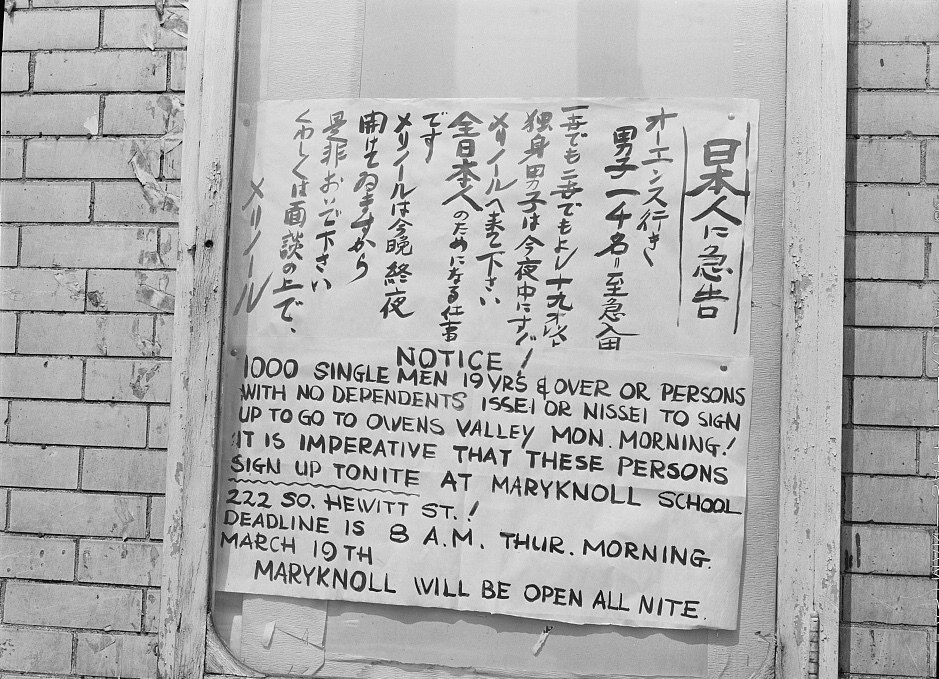 日本人に急告
オーエンス行き
男子一千名 至急入用
一世でも二世でもよし十九才以上
独身男子は今夜中に
メリノールへ来て下さい
全日本人のためになる仕事
です
メリノールは今晩終夜
開けてゐますから
是非おいで下さい
くわしくは面談の上で、
メリノール
NOTICE!
1000 SINGLE MEN 19 YRS & OVER OR PERSONS
WITH NO DEPENDENTS ISSEI OR NISSEI TO SIGN
UP TO GO TO OWENS VALLEY MON. MORNING!
IT IS IMPERATIVE THAT THESE PERSONS
SIGN UP TONITE AT MARYKNOLL SCHOOL
222 SO. HEWITT ST.!
DEADLINE IS 8 A.M. THUR. MORNING.
MARCH 19TH
MARYKNOLL WILL BE OPEN ALL NITE.